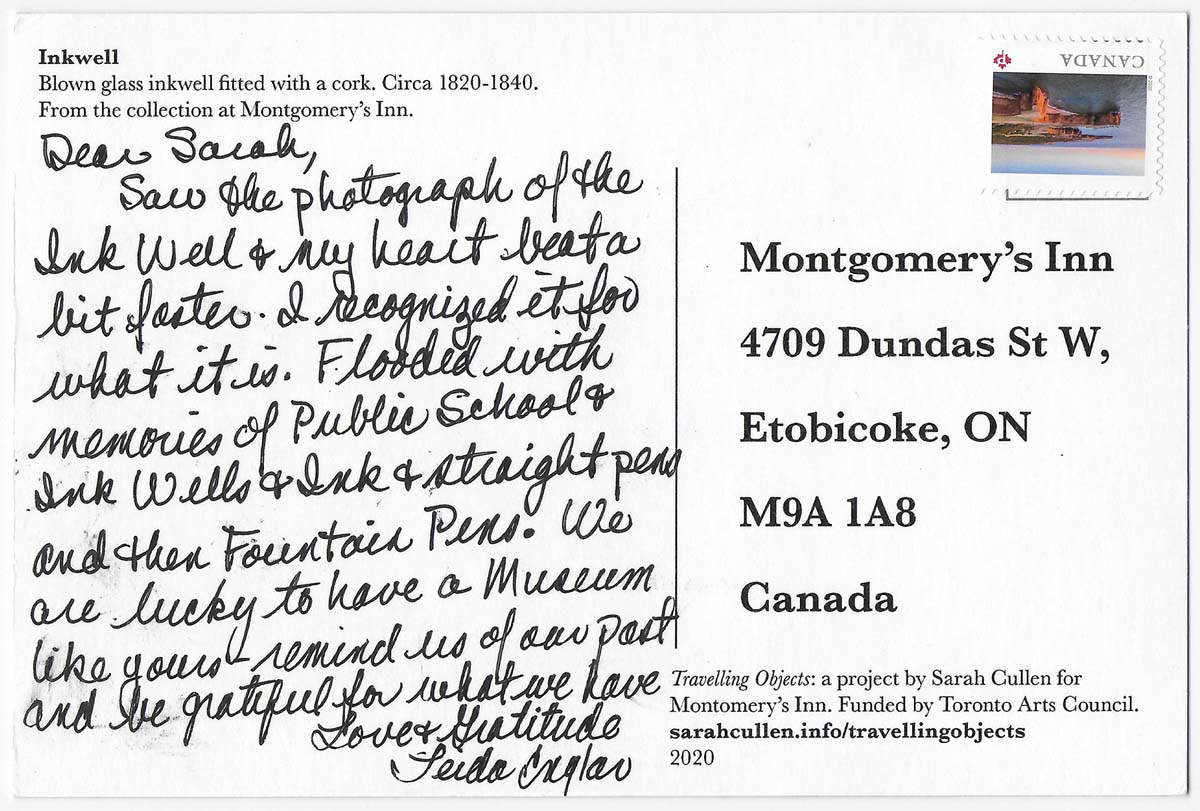 Inkwell
Blown glass inkwell fitted with a cork. Circa 1820-1840.
From the collection at Montgomery's Inn.
Dear Sarah,
Saw the photograph of the
Ink Well & my heart beat a
bit faster. I recognized it for
what it is. Flooded with
memories of Public School &
Ink Wells & Ink & straight pens
and then Fountain Pens. We
are lucky to have a Museum
like yours - remind us of our past
and be grateful for what we have
Love & Gratitude
Leida Englar
CANADA
Montgomery's Inn
4709 Dundas St W,
Etobicoke, ON
M9A 1A8
Canada
Travelling Objects: a project by Sarah Cullen for
Montomery's Inn. Funded by Toronto Arts Council.
sarahcullen.info/travellingobjects
2020